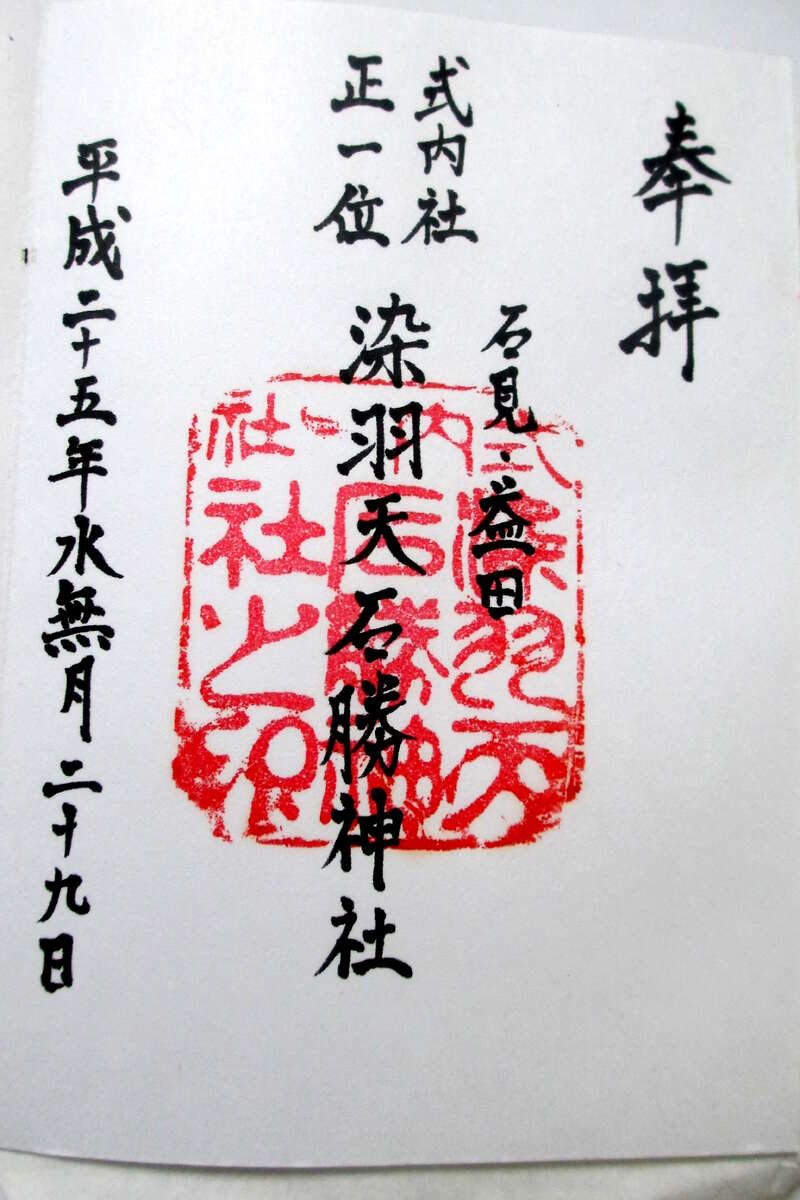 奉拝
式内社
正一位
石見・益田
染羽天石勝神社
平成二十五年水無月二十九日
式内一社
染羽天
石勝神
社之印